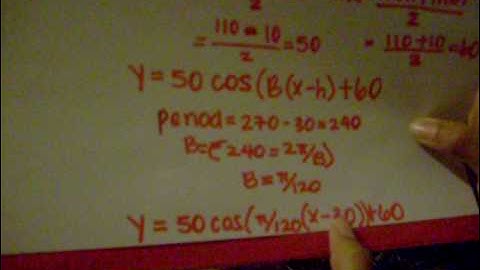 = 110 - 10 / 2 = 50
= 110 + 10 / 2 = 60
Y = 50 cos(B(x-h)+60
period = 270 - 30 = 240
B=( 240 = 2π/B)
B = π/120
Y = 50 cos(π/120(x-30))+60